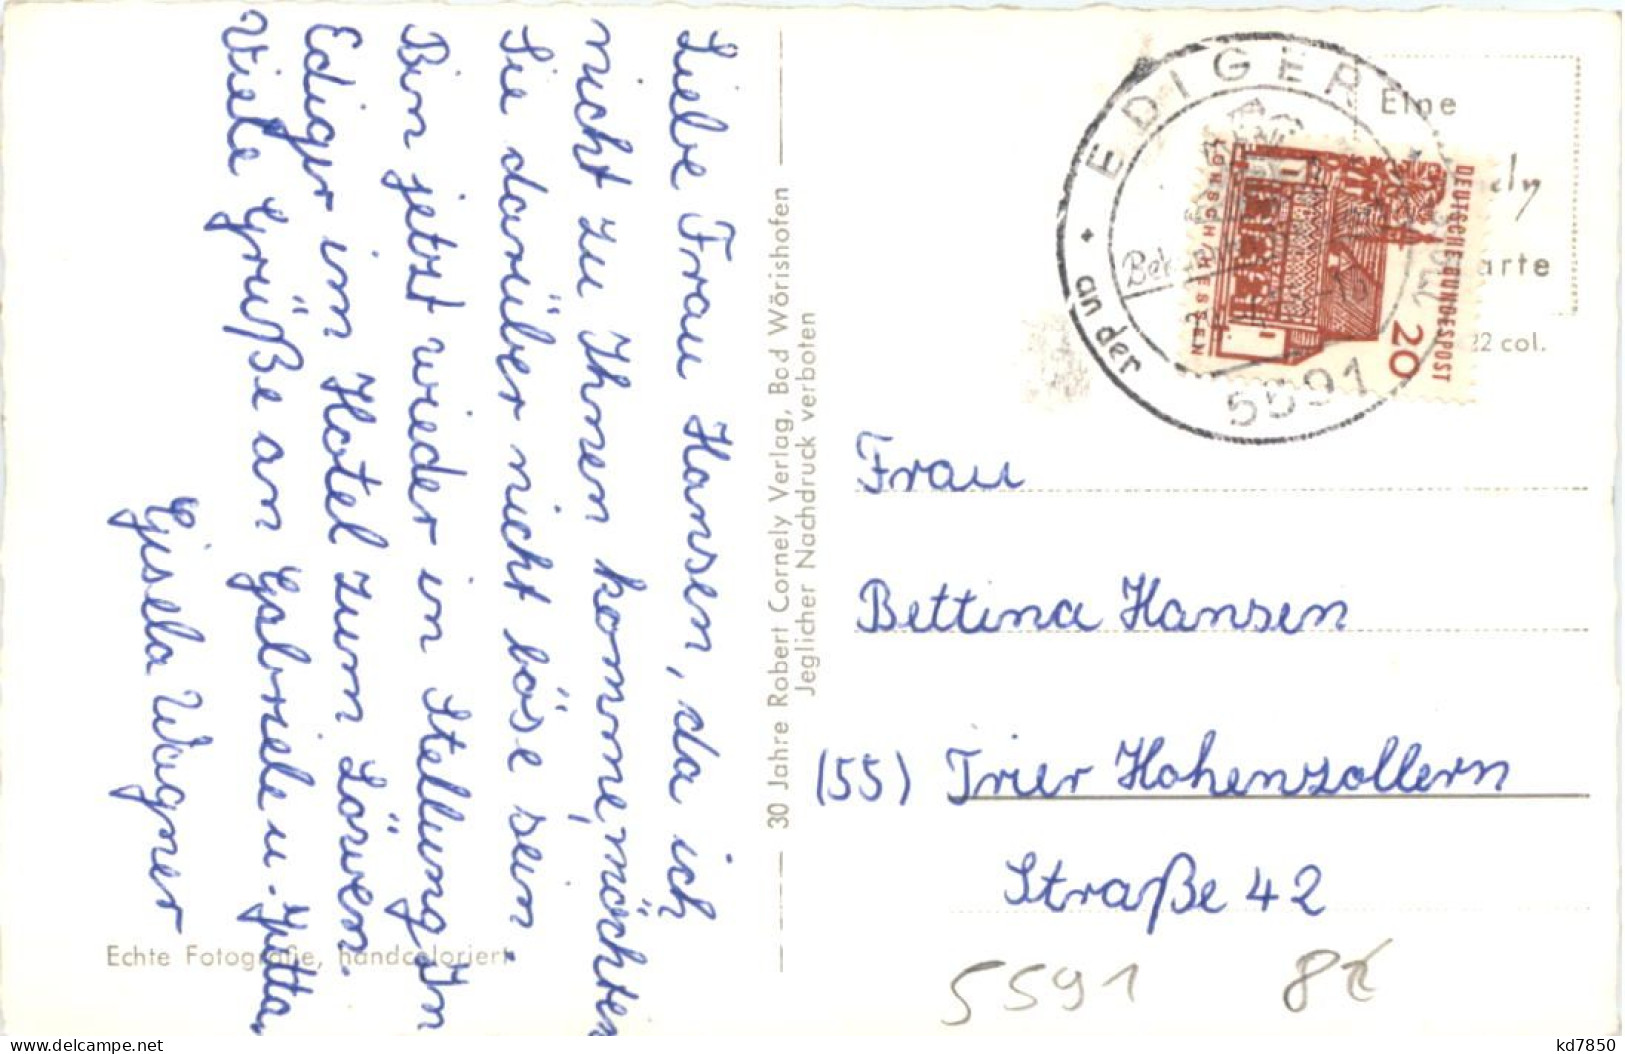 Liebe Frau Hansen, da ich
nicht zu Ihnen komme, möchten
Sie darüber nicht böse sein.
Bin jetzt wieder in Stellung In
Ediger im Hotel zum Löwen.
Viele Grüße an Gabriele u. Jutta.
Gisela Wagner
Echte Fotografie, handcoloriert
30 Jahre Robert Cornely Verlag, Bad Wörishofen
Jeglicher Nachdruck verboten
EDIGER
an der
5591
DEUTSCHE BUNDESPOST
20
LORSCH/HESSEN
Eine
ely
arte
22 col.
Frau
Bettina Hansen
(55) Trier Hohenzollern
Straße 42
5591
kd7850